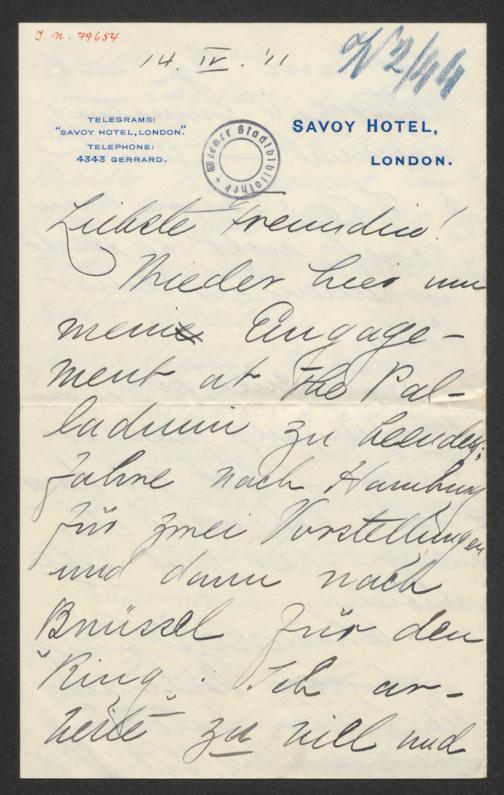 J. N. 79654
14. IV. '11
TELEGRAMS:
"SAVOY HOTEL, LONDON."
TELEPHONE:
4343 GERRARD.
Wiener Stadtbibliothek
SAVOY HOTEL,
LONDON.
Liebste Freundin!
Wieder hier um
mein Engage-
ment at the Pal-
ladium zu beenden;
fahre nach Hamburg
für zwei Vorstellungen
und dann nach
Brüssel für den
"Ring". Ich ar-
beite zu viell und